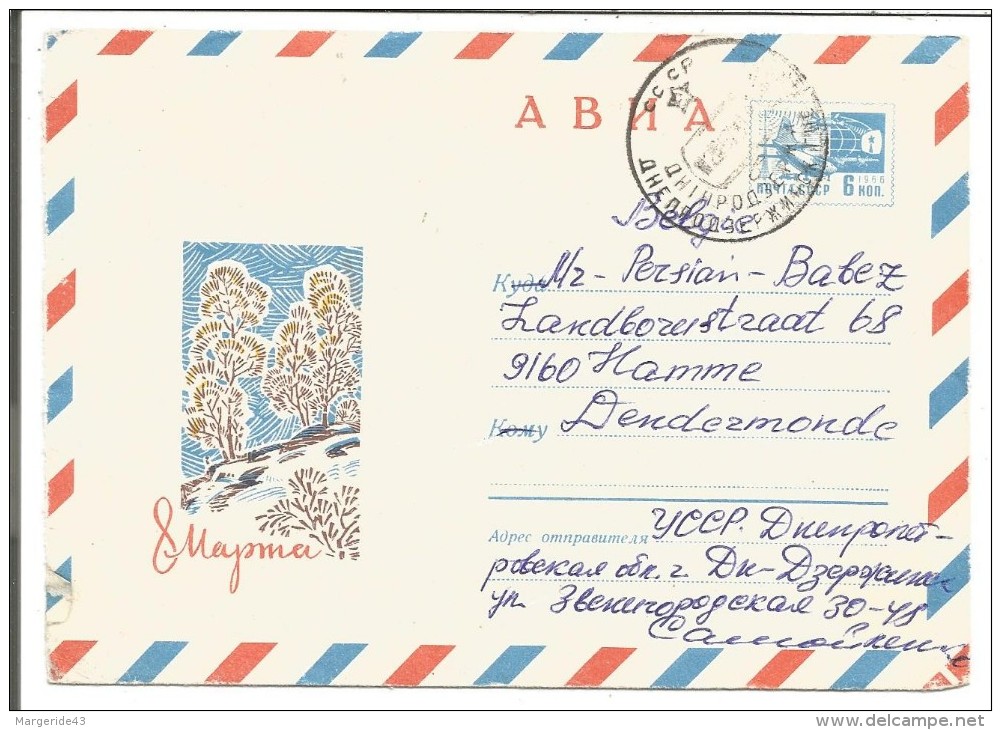 АВИА
СССР
ДНІПРОДЗЕРЖИНСЬК
ДНЕПРОДЗЕРЖИНСК
1966
ПОЧТА СССР 6 КОП.
Belgie
Куда Mr - Persian - Babez
Landboustraat 68
9160 Hamme
Кому Dendermonde
8 Марта
Адрес отправителя УССР. Днепропет-
ровская обл. г. Дн-Дзержинск
ул. Звенигородская 30-48
Margeride43
www.delcampe.net